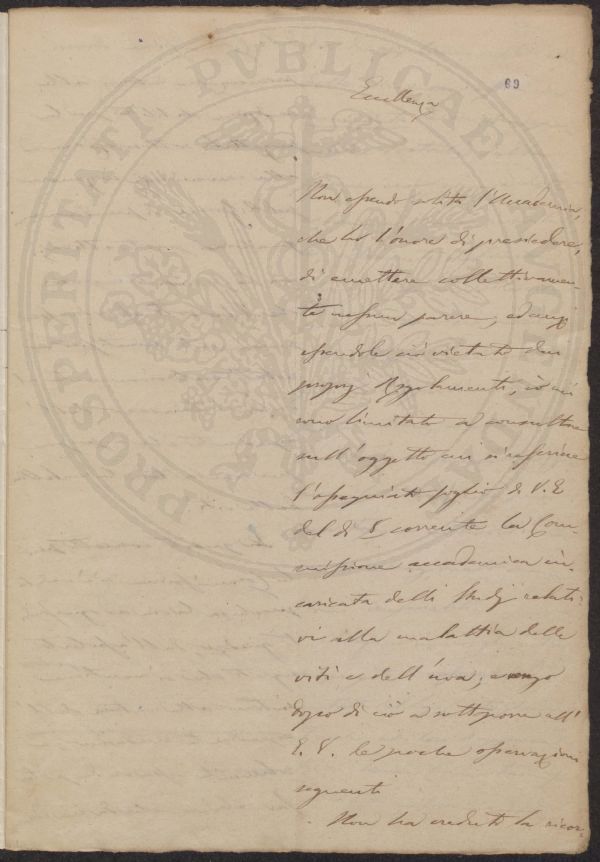 69
Eccellenza
Non essendo solita l'Accademia,
che ho l'onore di presiedere,
di emettere collettivamen-
te nessun parere, ed anzi
essendole ciò vietato dai
proprj Regolamenti, io mi
sono limitato a consultare
sull'oggetto cui si riferisce
l'ossequiato foglio di V. E.
del dì 5 corrente la Com-
missione accademica in-
caricata delli Studj relati-
vi alla malattia delle
viti e dell'uva; e vengo
dopo di ciò a sottoporre all'
E. V. le poche osservazioni
seguenti
Non ha creduto la ricor-
PROSPERITATI PVBLICAE